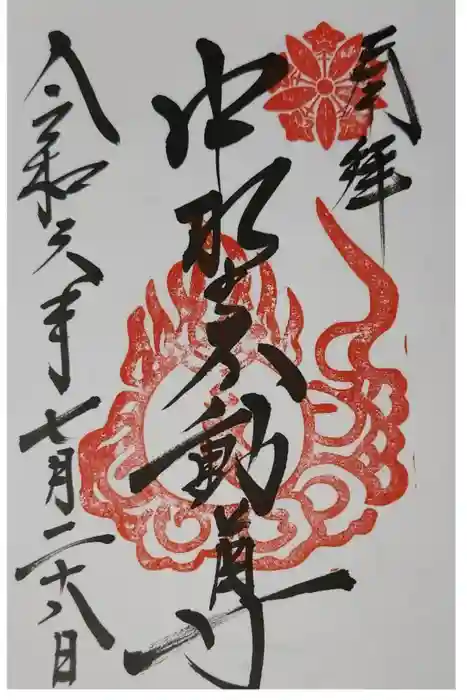 奉拝
中野不動尊
令和元年七月二十八日